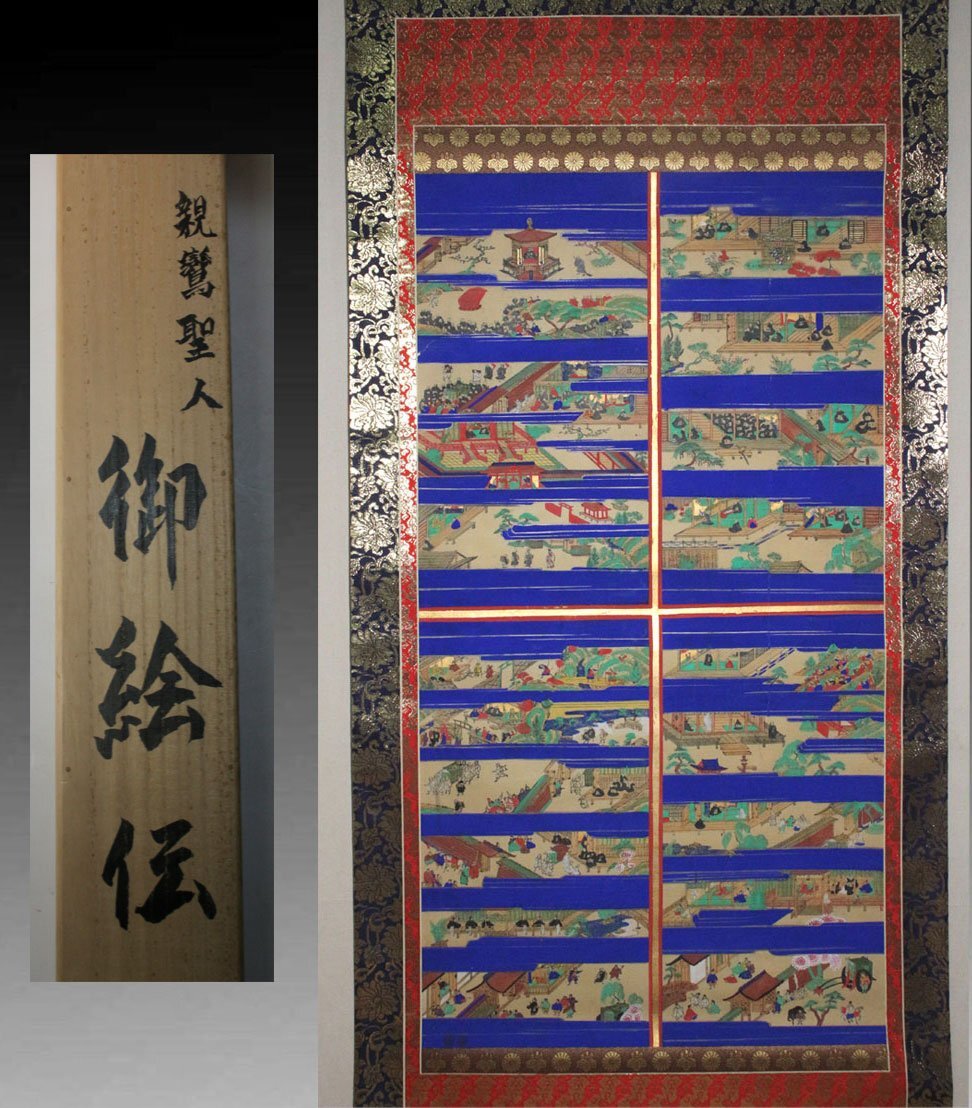 親鸞聖人
御絵伝